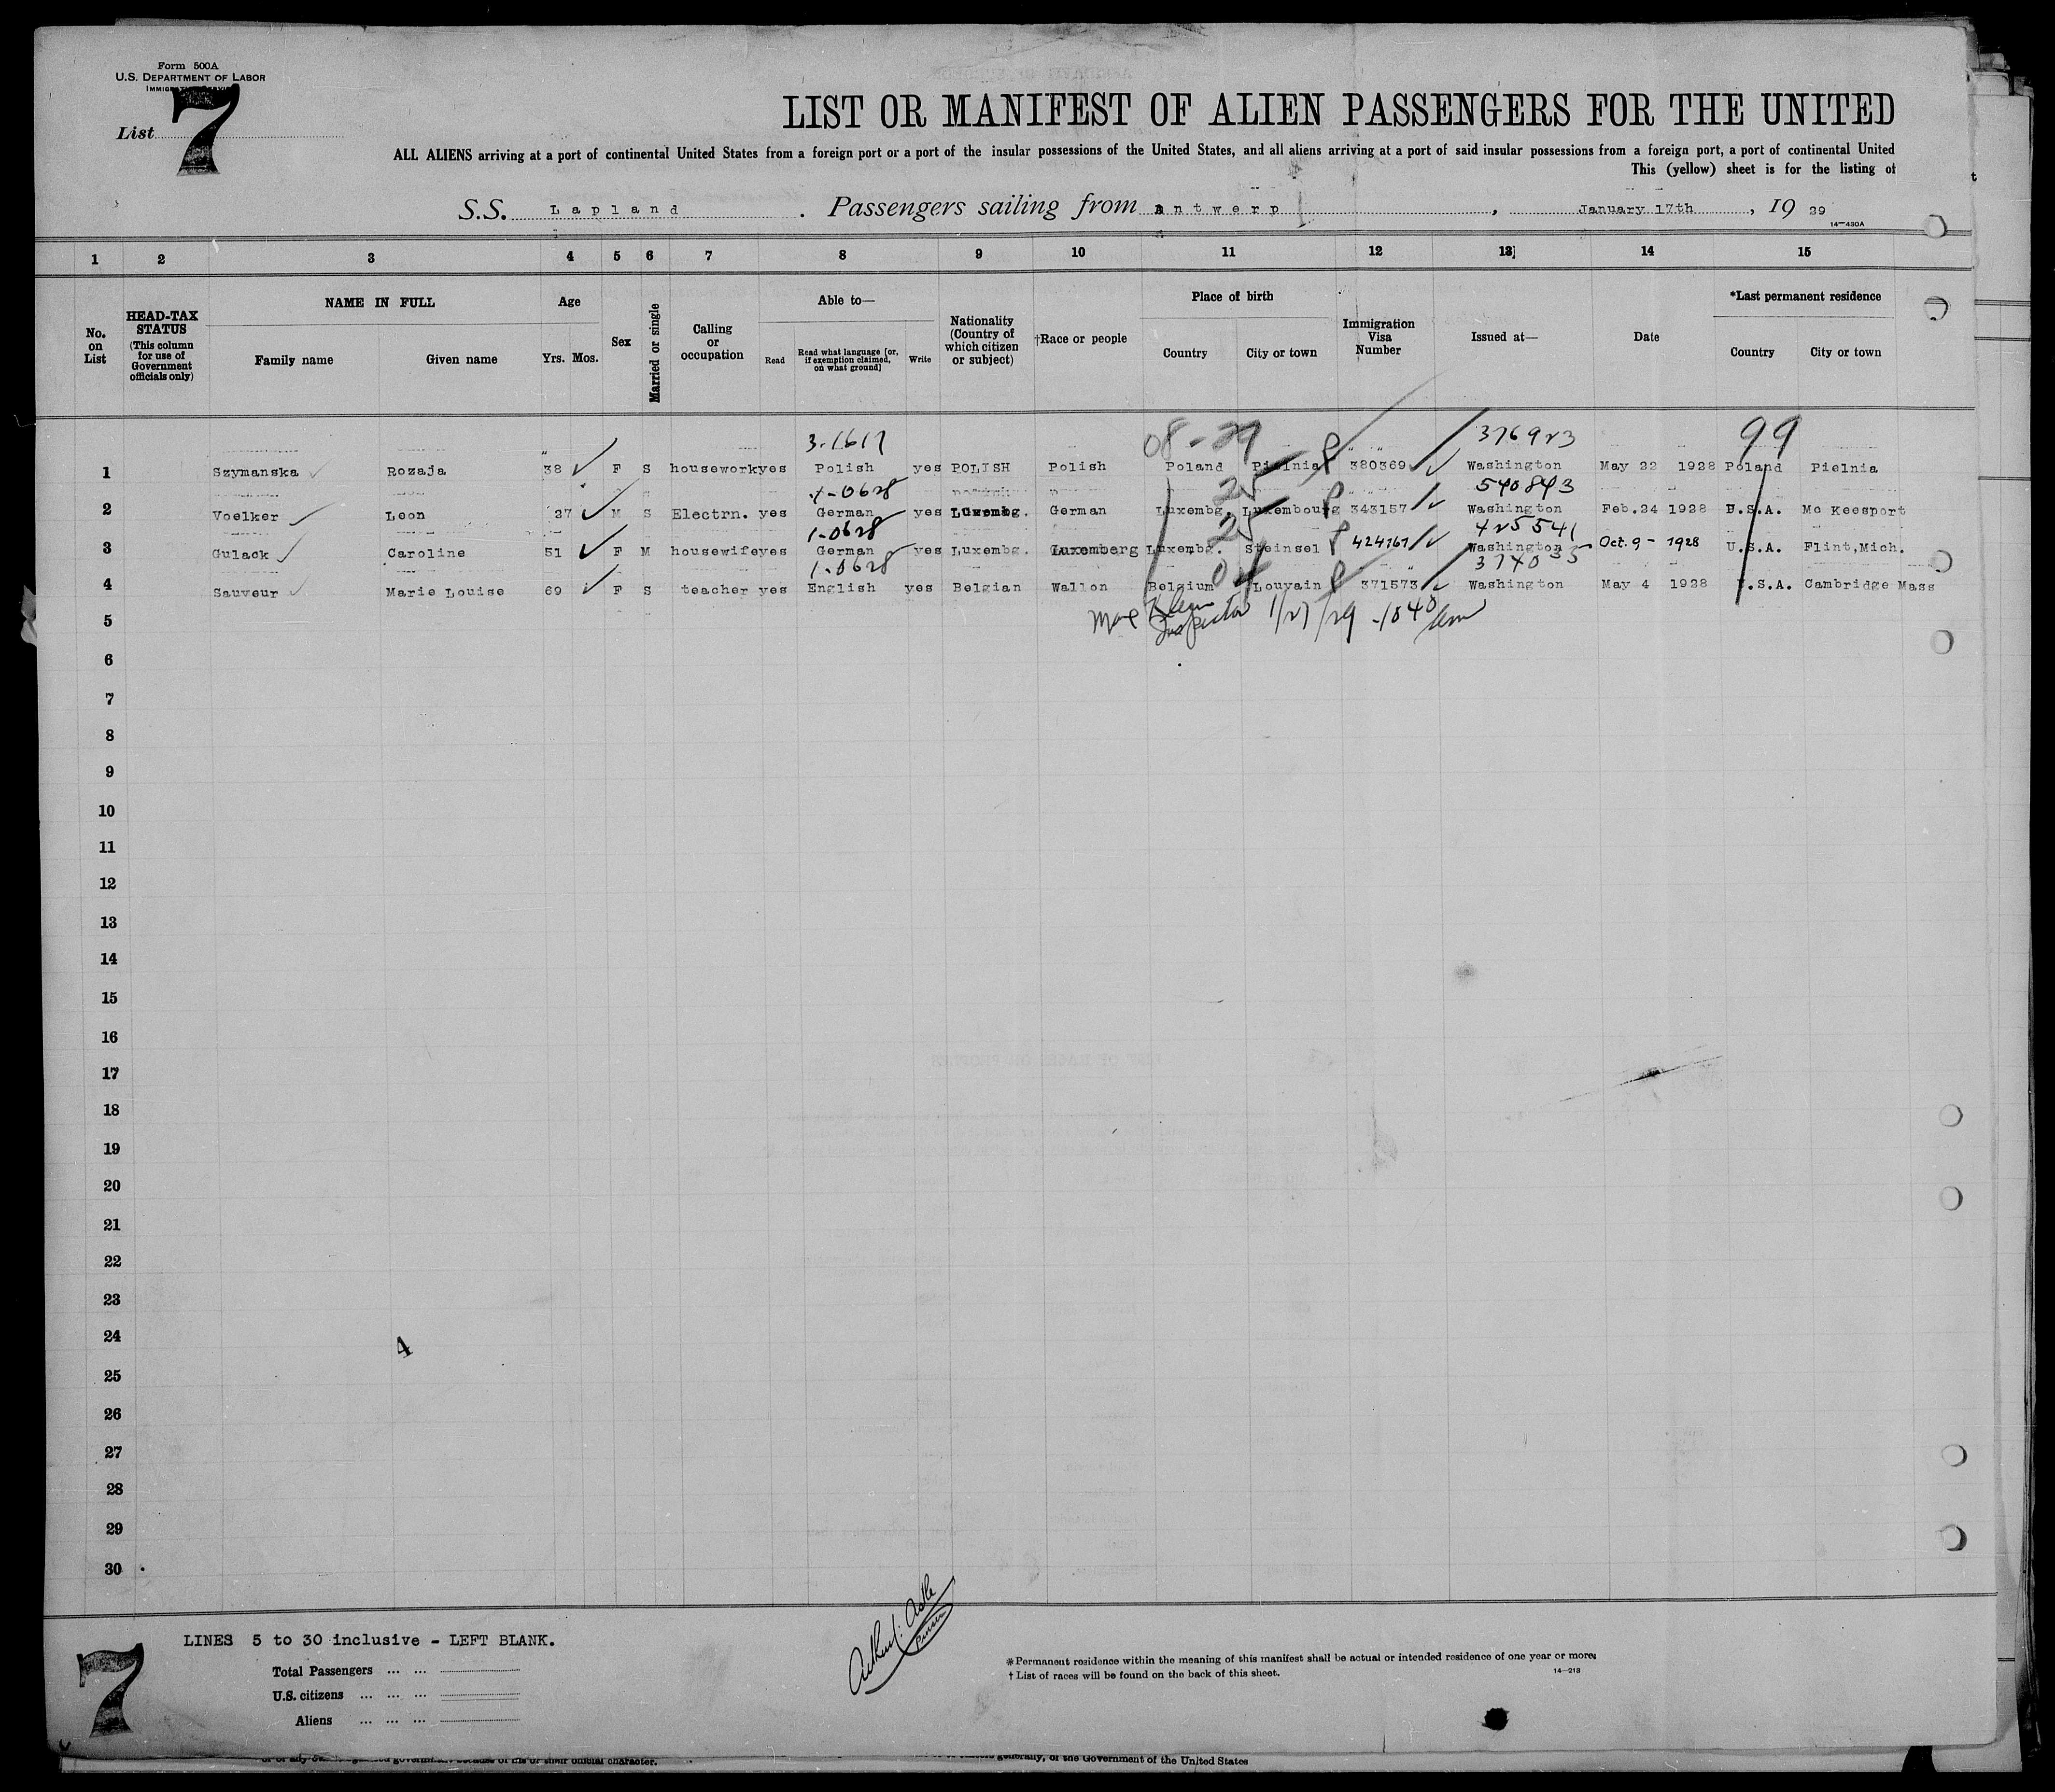 Form 500A
U.S. DEPARTMENT OF LABOR
List 7
LIST OR MANIFEST OF ALIEN PASSENGERS FOR THE UNITED
ALL ALIENS arriving at a port of continental United States from a foreign port or a port of the insular possessions of the United States, and all aliens arriving at a port of said insular possessions from a foreign port, a port of continental United
This (yellow) sheet is for the listing of
S.S. Lapland . Passengers sailing from Antwerp , January 17th , 19 29
14—430A
1 2 3 4 5 6 7 8 9 10 11 12 13 14 15
No. on List
HEAD-TAX STATUS (This column for use of Government officials only)
NAME IN FULL
Family name Given name
Age
Yrs. Mos.
Sex
Married or single
Calling or occupation
Able to—
Read Read what language [or, if exemption claimed, on what ground] Write
Nationality (Country of which citizen or subject)
†Race or people
Place of birth
Country City or town
Immigration Visa Number
Issued at—
Date
*Last permanent residence
Country City or town
3-1617 08-29 376923 99
1 Szymanska Rozaja 38 F S housework yes Polish yes POLISH Polish Poland Pielnia 380369 Washington May 22 1928 Poland Pielnia
1-0628 25 540843
2 Voelker Leon 37 M S Electrn. yes German yes Luxembg. German Luxembg. Luxembourg 343157 Washington Feb.24 1928 U.S.A. Mc Keesport
1-0628 25 425541
3 Gulack Caroline 51 F M housewife yes German yes Luxembg. Luxemberg Luxembg. Steinsel 424767 Washington Oct. 9 - 1928 U.S.A. Flint,Mich.
1-0628 374035
4 Sauveur Marie Louise 69 F S teacher yes English yes Belgian Wallon Belgium Louvain 371573 Washington May 4 1928 U.S.A. Cambridge Mass
5 Inspector 1/27/29 -1040
6
7
8
9
10
11
12
13
14
15
16
17
18
19
20
21
22
23
24
4
25
26
27
28
29
30
LINES 5 to 30 inclusive - LEFT BLANK.
Total Passengers ... ...
U.S. citizens ... ... ...
Aliens ... ... ...
7
Purser
*Permanent residence within the meaning of this manifest shall be actual or intended residence of one year or more.
†List of races will be found on the back of this sheet.
14—213
their official character.
generally, of the Government of the United States